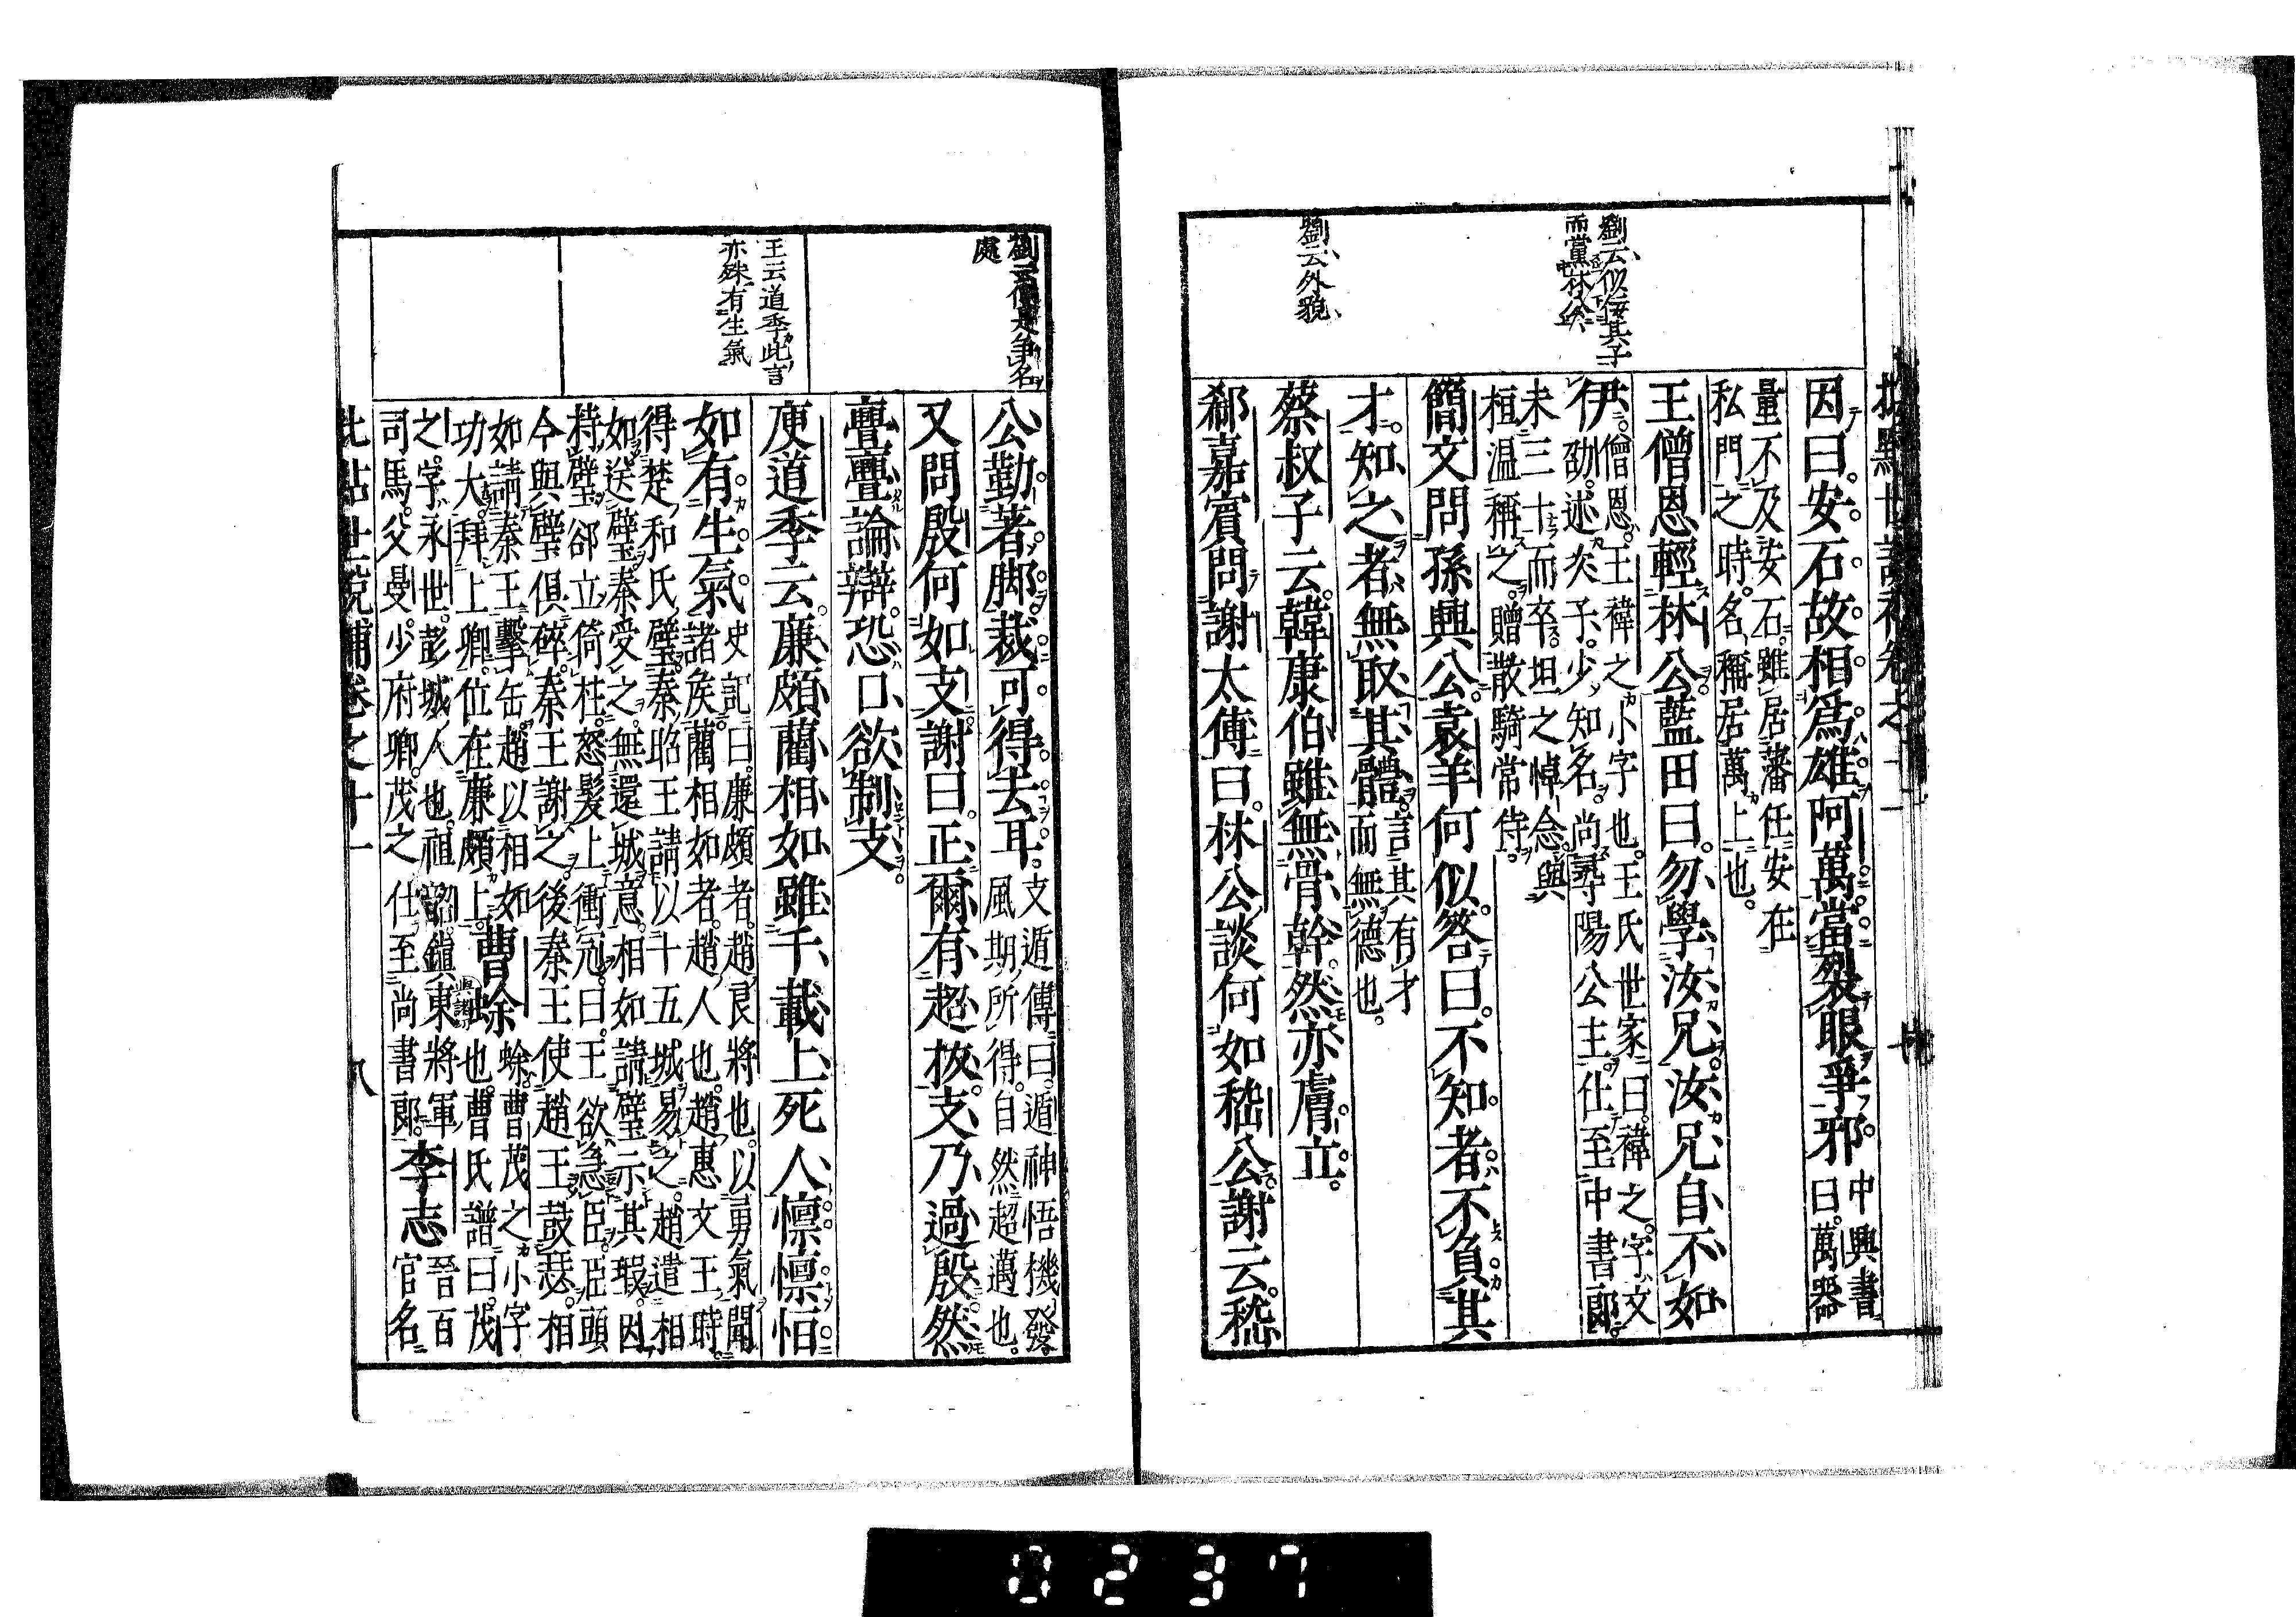 批點世說補卷之十一
劉云似佞其子
而黨林公
劉云外貌
因曰安石故相爲雄阿萬當裂眼爭邪中興書
曰萬器
量不及安石雖居藩任安在
私門之時名稱居萬上也
王僧恩輕林公藍田曰勿學汝兄汝兄自不如
伊僧恩王禕之小字也王氏世家曰禕之字文
劭述次子少知名尚尋陽公主仕至中書郎
未三十而卒坦之悼念與
桓温稱之贈散騎常侍
簡文問孫興公袁羊何似答曰不知者不負其
才知之者無取其體言其有才
而無德也
蔡叔子云韓康伯雖無骨幹然亦膚立
郗嘉賓問謝太傅曰林公談何如嵇公謝云嵇
劉云便是爭名
處
王云道季此言
亦殊有生氣
公勤著脚裁可得去耳支遁傳曰遁神悟機發
風期所得自然超邁也
又問殷何如支謝曰正爾有超拔支乃過殷然
亹亹論辯恐口欲制支
庾道季云廉頗藺相如雖千載上死人懍懍恒
如有生氣史記曰廉頗者趙良將也以勇氣聞
諸矦藺相如者趙人也趙惠文王時
得楚和氏璧秦昭王請以十五城易之趙遣相
如送璧秦受之無還城意相如請璧示其瑕因
持璧卻立倚柱怒髮上衝冠曰王欲急臣臣頭
今與璧俱碎秦王謝之後秦王使趙王鼓瑟相
如請秦王擊缶趙以相如
功大拜上卿位在廉頗上
曹蜍蜍曹茂之小字
也曹氏譜曰茂
之字永世彭城人也祖韶鎭東將軍
司馬父曼少府卿茂之仕至尚書郎
李志晉百
官名
批點世說補卷之十一
八